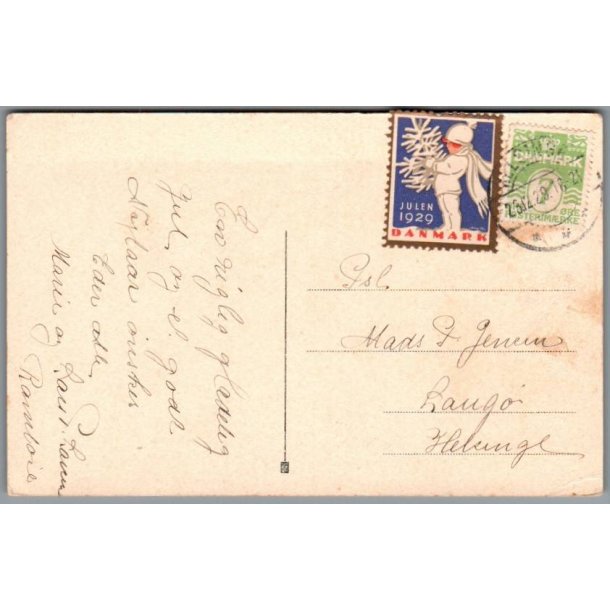 En rigtig glædelig
Jul, og et godt
Nytaar ønskes
Eder alle,
Marie og Laust
JULEN
1929
DANMARK
DANMARK
ØRE
Mads P. Jensen
Langø
Helsinge